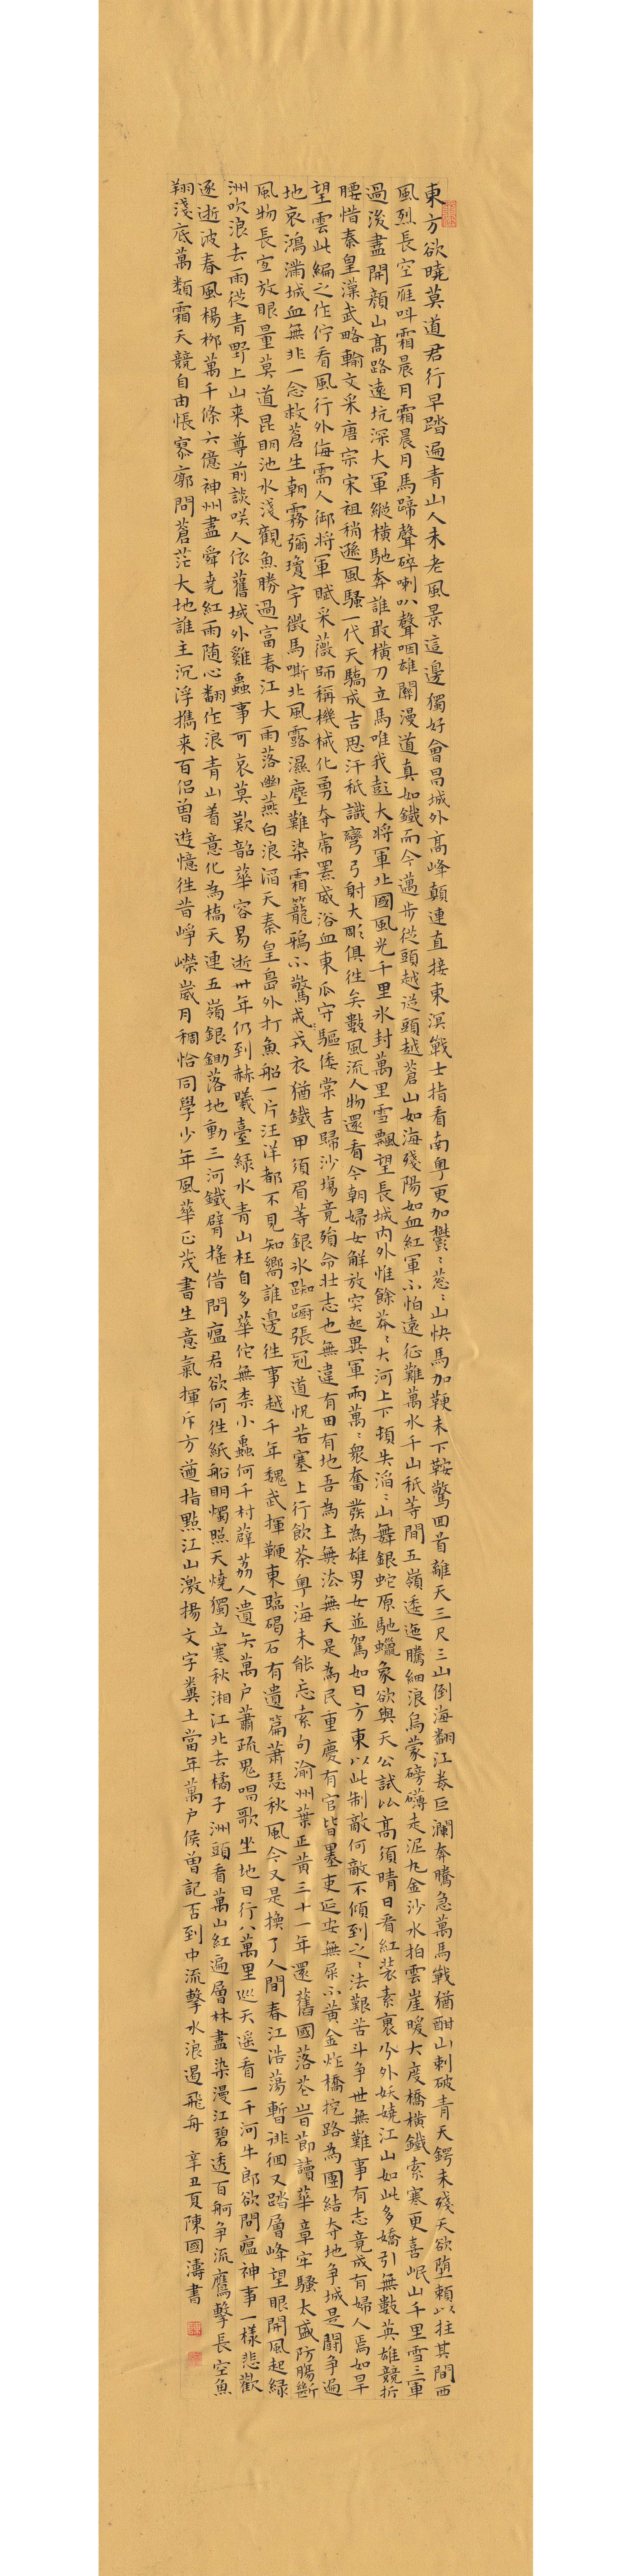 東方欲曉莫道君行早踏遍青山人未老風景這邊獨好會昌城外高峰顛連直接東溟戰士指看南粵更加鬱〻蔥〻山快馬加鞭未下鞍驚回首離天三尺三山倒海翻江卷巨瀾奔騰急萬馬戰猶酣山刺破青天鍔未殘天欲墮賴以拄其間西
風烈長空雁叫霜晨月霜晨月馬蹄聲碎喇叭聲咽雄關漫道真如鐵而今邁步從頭越從頭越蒼山如海殘陽如血紅軍不怕遠征難萬水千山秖等閒五嶺逶迤騰細浪烏蒙磅礴走泥丸金沙水拍雲崖暖大度橋橫鐵索寒更喜岷山千里雪三軍
過後盡開顏山高路遠坑深大軍縱橫馳奔誰敢橫刀立馬唯我彭大將軍北國風光千里冰封萬里雪飄望長城內外惟餘莽〻大河上下頓失滔〻山舞銀蛇原馳蠟象欲與天公試比高須晴日看紅裝素裹分外妖嬈江山如此多嬌引無數英雄競折
腰惜秦皇漢武略輸文采唐宗宋祖稍遜風騷一代天驕成吉思汗秖識彎弓射大彫俱往矣數風流人物還看今朝婦女解放突起異軍兩萬〻眾奮發為雄男女並駕如日方東以此制敵何敵不傾到之〻法艱苦斗爭世無難事有志竟成有婦人焉如旱
望雲此編之作佇看風行外侮需人御將軍賦采薇師稱機械化勇奪虎羆威浴血東瓜守驅倭棠吉歸沙場竟殞命壯志也無違有田有地吾為主無法無天是為民重慶有官皆墨吏延安無屎不黃金炸橋挖路為團結奪地爭城是鬪爭遍
地哀鴻滿城血無非一念救蒼生朝霧彌瓊宇徵馬嘶北風露濕塵難染霜籠鴉不驚戒戎衣猶鐵甲須眉等銀冰踟躕張冠道怳若塞上行飲茶粵海未能忘索句渝州葉正黃三十一年還舊國落花時節讀華章牢騷太盛防腸斷
風物長宜放眼量莫道昆明池水淺觀魚勝過富春江大雨落幽燕白浪滔天秦皇島外打魚船一片汪洋都不見知嚮誰邊往事越千年魏武揮鞭東臨碣石有遺篇蕭瑟秋風今又是換了人間春江浩蕩暫徘徊又踏層峰望眼開風起綠
洲吹浪去雨從青野上山來尊前談笑人依舊域外雞蟲事可哀莫歎韶華容易逝卅年仍到赫曦臺綠水青山枉自多華佗無柰小蟲何千村薜荔人遺矢萬戶蕭疏鬼唱歌坐地日行八萬里巡天遙看一千河牛郎欲問瘟神事一樣悲歡
逐逝波春風楊柳萬千條六億神州盡舜堯紅雨隨心翻作浪青山着意化為橋天連五嶺銀鋤落地動三河鐵臂搖借問瘟君欲何往紙船明燭照天燒獨立寒秋湘江北去橘子洲頭看萬山紅遍層林盡染漫江碧透百舸爭流鷹擊長空魚
翔淺底萬類霜天競自由悵寥廓問蒼茫大地誰主沉浮攜來百侶曾遊憶往昔崢嶸歲月稠恰同學少年風華正茂書生意氣揮斥方遒指點江山激揚文字糞土當年萬戶侯曾記否到中流擊水浪遏飛舟 辛丑夏陳國濤書